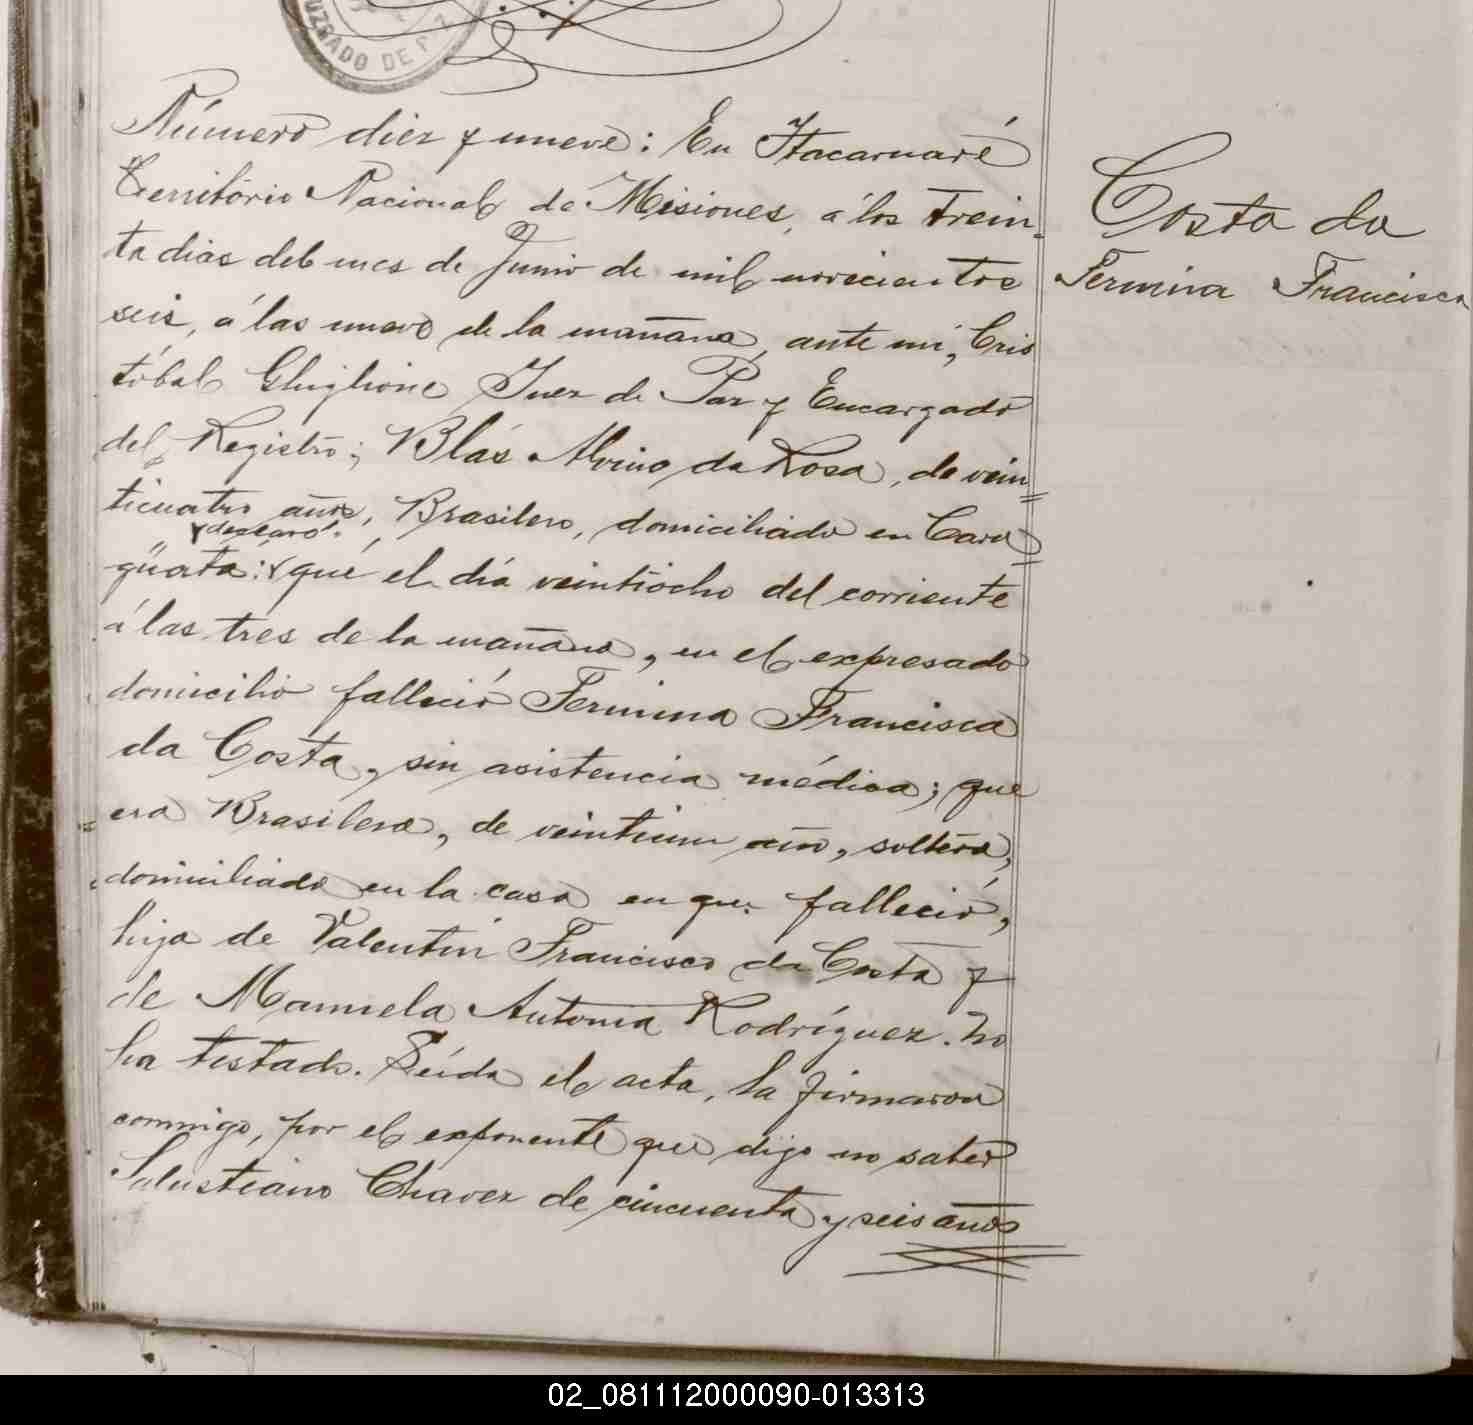 JUZGADO DE P
Número diez y nueve: En Itacaruaré
Territorio Nacional de Misiones, á los trein-
ta dias del mes de Junio de mil novecientos
seis, á las nueve de la mañana, ante mi, Cris
tóbal Ghiglione Juez de Paz y Encargado
del Registro; Blás Alvino da Rosa, de vein=
ticuatro años, Brasilero, domiciliado en Cara=
declaró.
güata: que el día veintiocho del corriente
á las tres de la mañana, en el expresado
domicilio falleció Fermina Francisca
da Costa, sin asistencia médica; que
era Brasilera, de veintiun año, soltera,
domiciliada en la casa en que falleció,
hija de Valentin Francisco da Costa y
de Manuela Antonia Rodríguez. No
ha testado. Leída el acta, la firmaron
conmigo, por el exponente que dijo no saber
Salustiano Chavez de cincuenta y seis años
Costa da
Fermina Francisca
02_081112000090-013313